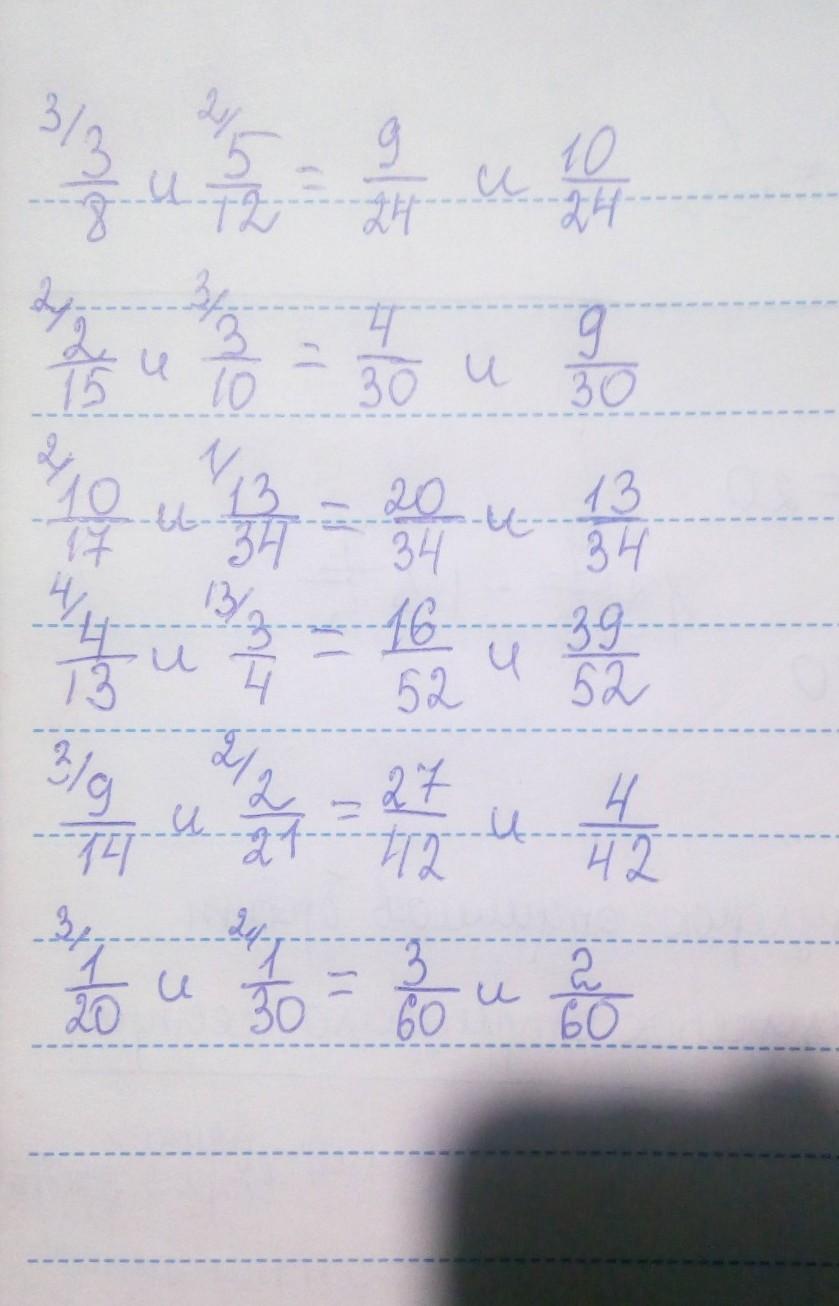 3/ 3/8 и 2/ 5/12 = 9/24 и 10/24
2/ 2/15 и 3/ 3/10 = 4/30 и 9/30
2/ 10/17 и 1/ 13/34 = 20/34 и 13/34
4/ 4/13 и 13/ 3/4 = 16/52 и 39/52
3/ 9/14 и 2/ 2/21 = 27/42 и 4/42
3/ 1/20 и 2/ 1/30 = 3/60 и 2/60